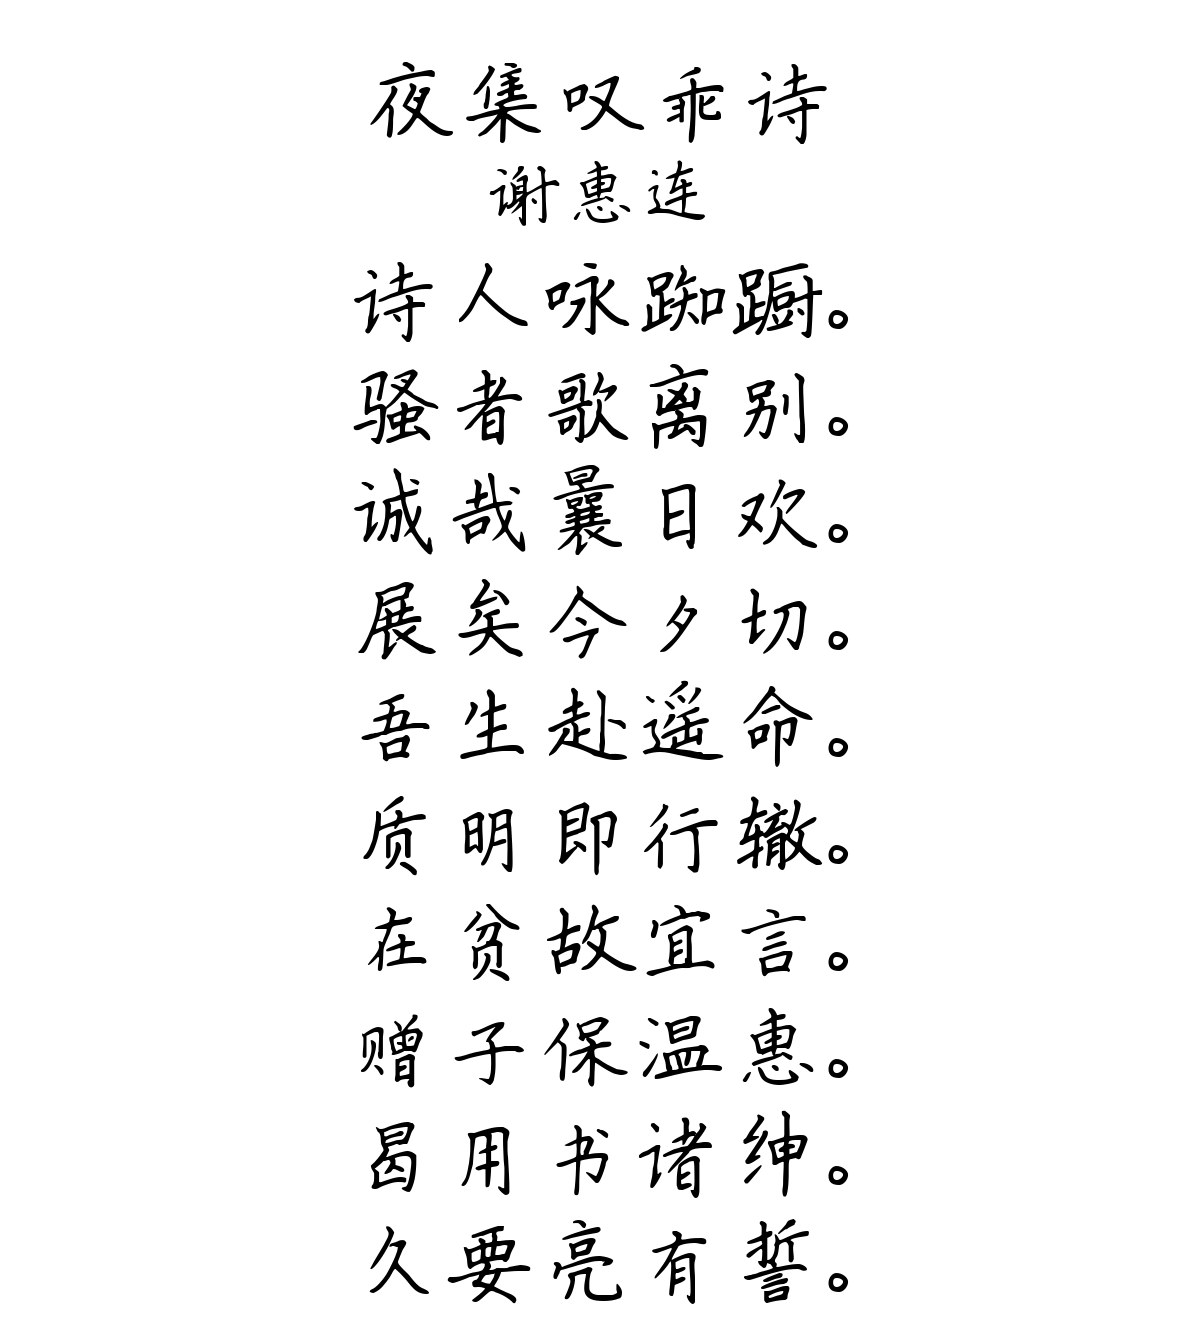 夜集叹乖诗
谢惠连
诗人咏踟蹰。
骚者歌离别。
诚哉曩日欢。
展矣今夕切。
吾生赴遥命。
质明即行辙。
在贫故宜言。
赠子保温惠。
曷用书诸绅。
久要亮有誓。